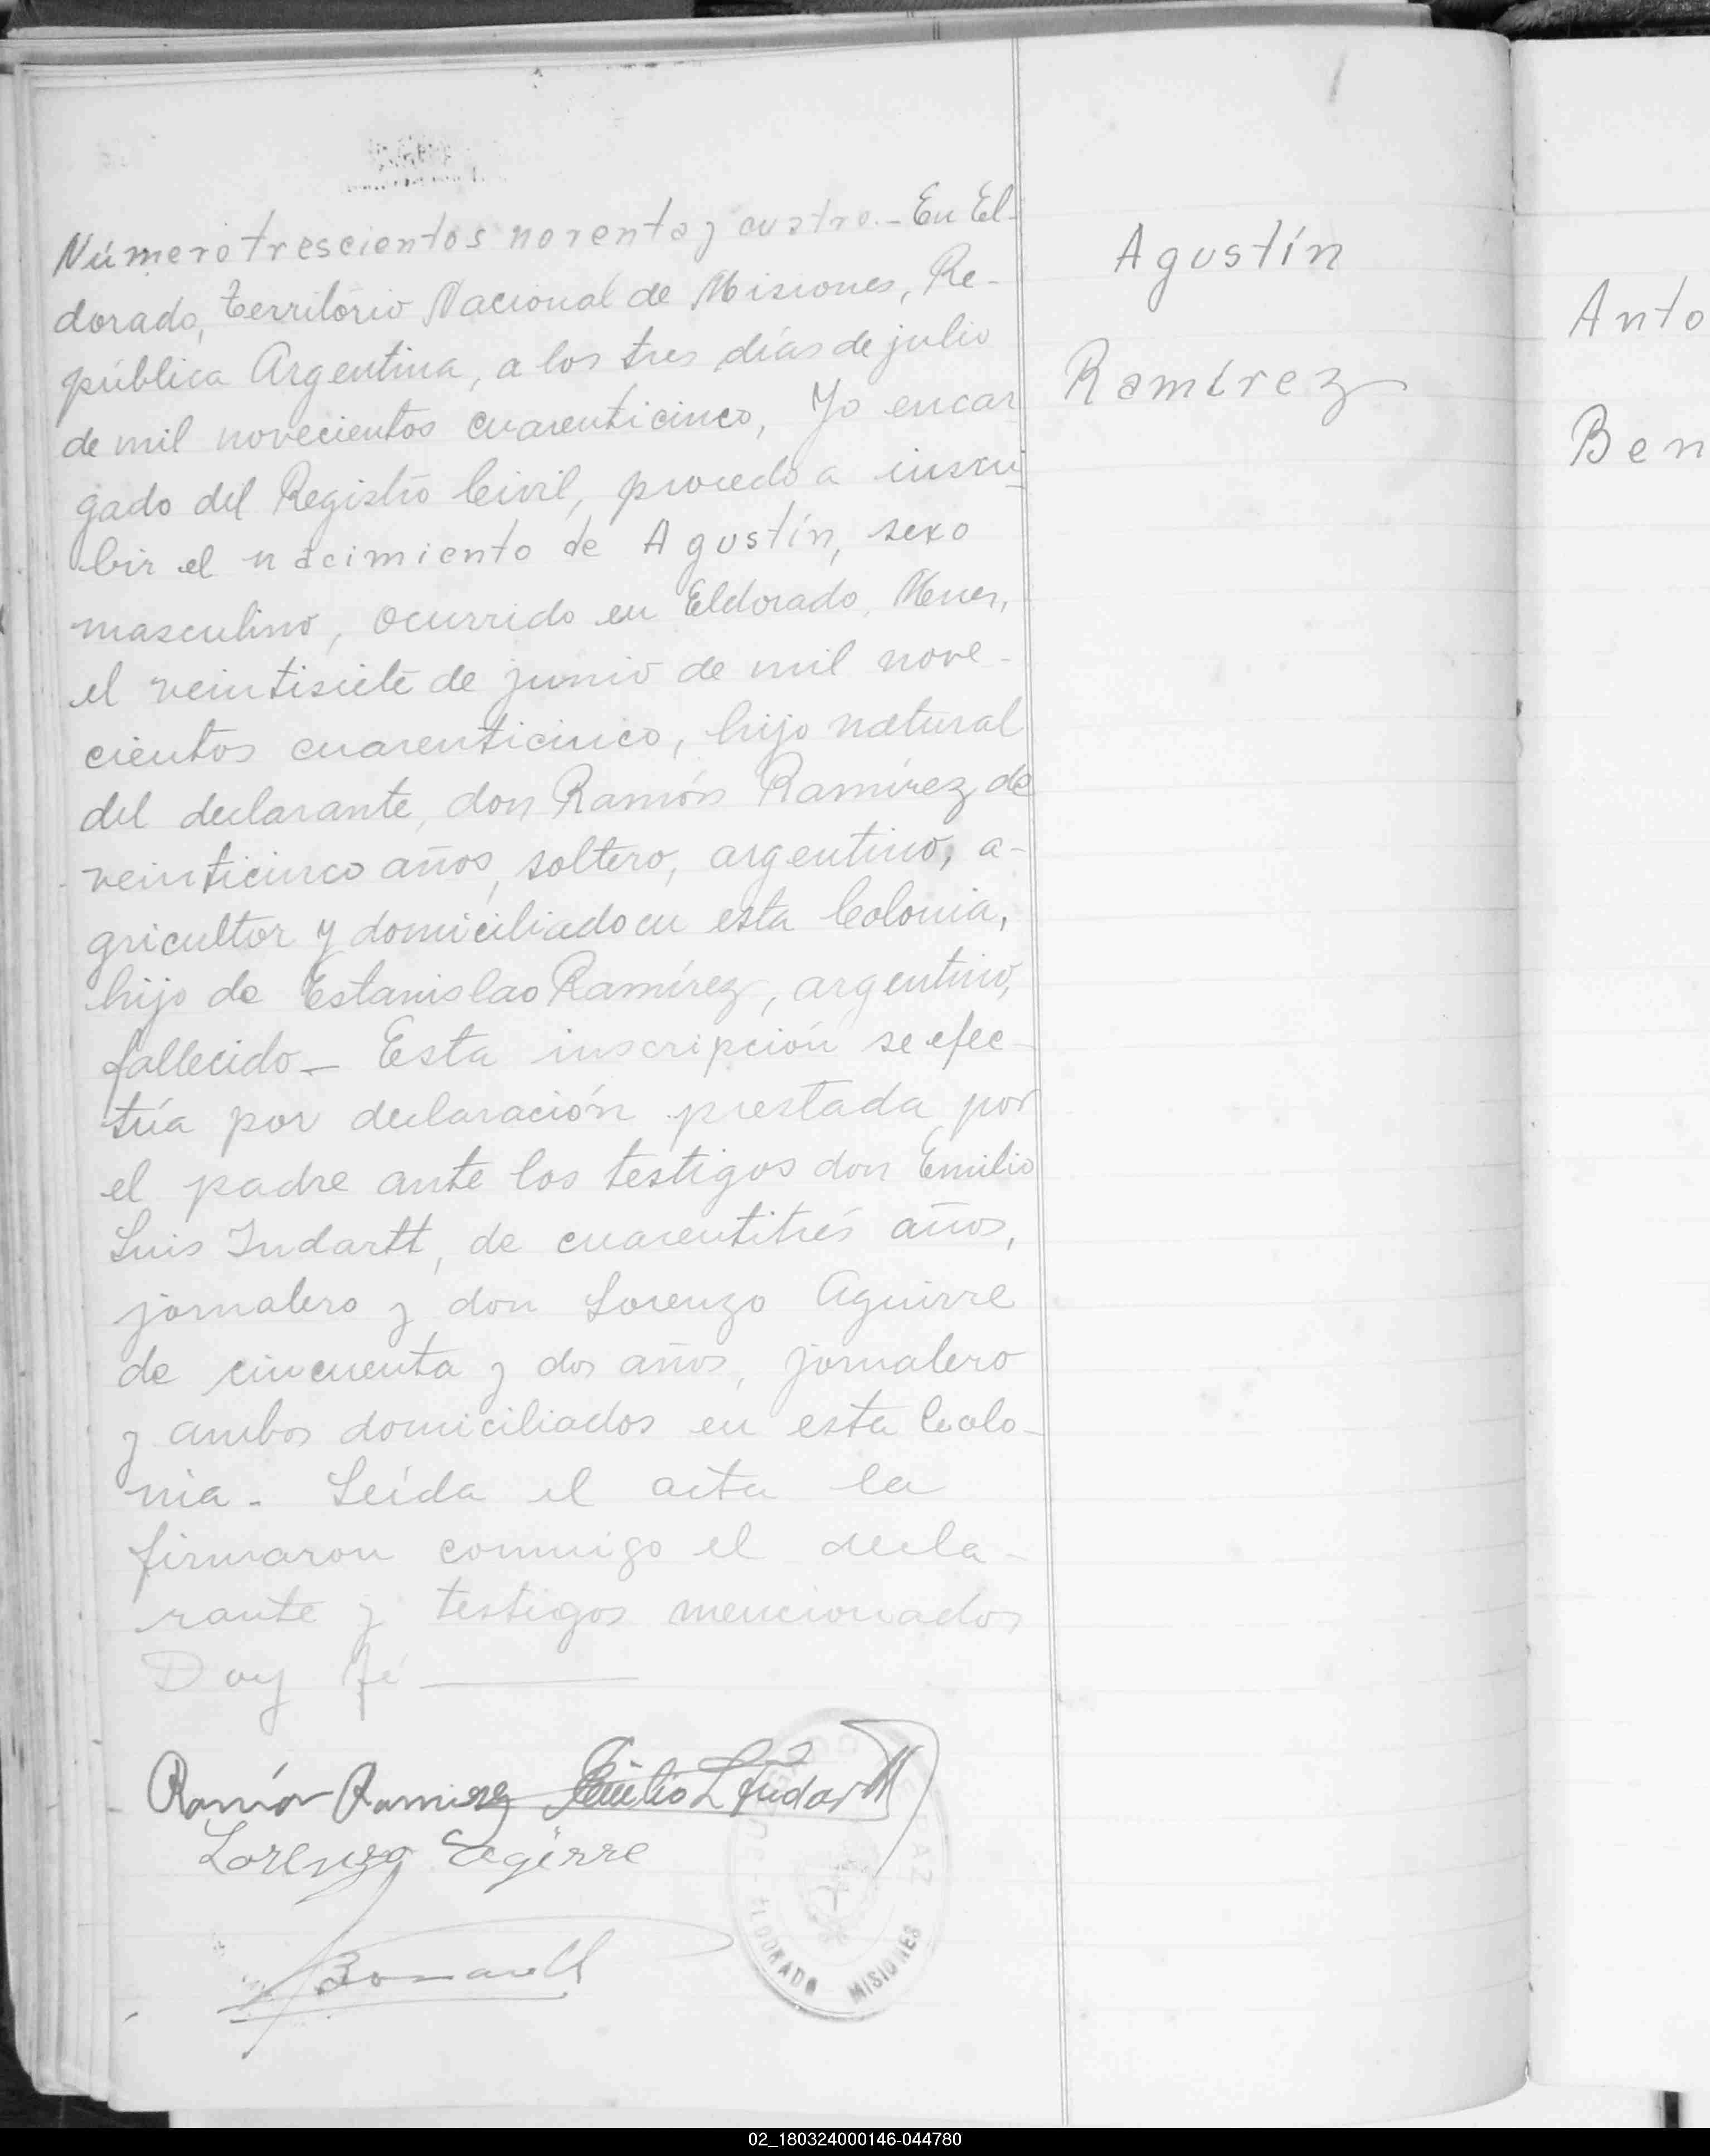 Número trescientos noventa y cuatro.- En El-
dorado, territorio Nacional de Misiones, Re-
pública Argentina, a los tres días de julio
de mil novecientos cuarenticinco, Yo encar
gado del Registro Civil, procedo a inscri
bir el nacimiento de Agustín, sexo
masculino, ocurrido en Eldorado, Mnes,
el veintisiete de junio de mil nove-
cientos cuarenticinco, hijo natural
del declarante, don Ramón Ramírez de
veinticinco años, soltero, argentino, a-
gricultor y domiciliado en esta Colonia,
hijo de Estanislao Ramírez, argentino,
fallecido- Esta inscripción se efec-
túa por declaración prestada por
el padre ante los testigos don Emilio
Luis Indartt, de cuarentitrés años,
jornalero y don Lorenzo Aguirre
de cincuenta y dos años, jornalero
y ambos domiciliados en esta Colo-
nia - Leída el acta la
firmaron conmigo el decla-
rante y testigos mencionados
Doy fé
Agustín
Ramírez
Ramón Ramirez Emilio L Indartt
Lorenzo
ELDORADO MISIONES
Anto
Ben
02_180324000146-044780